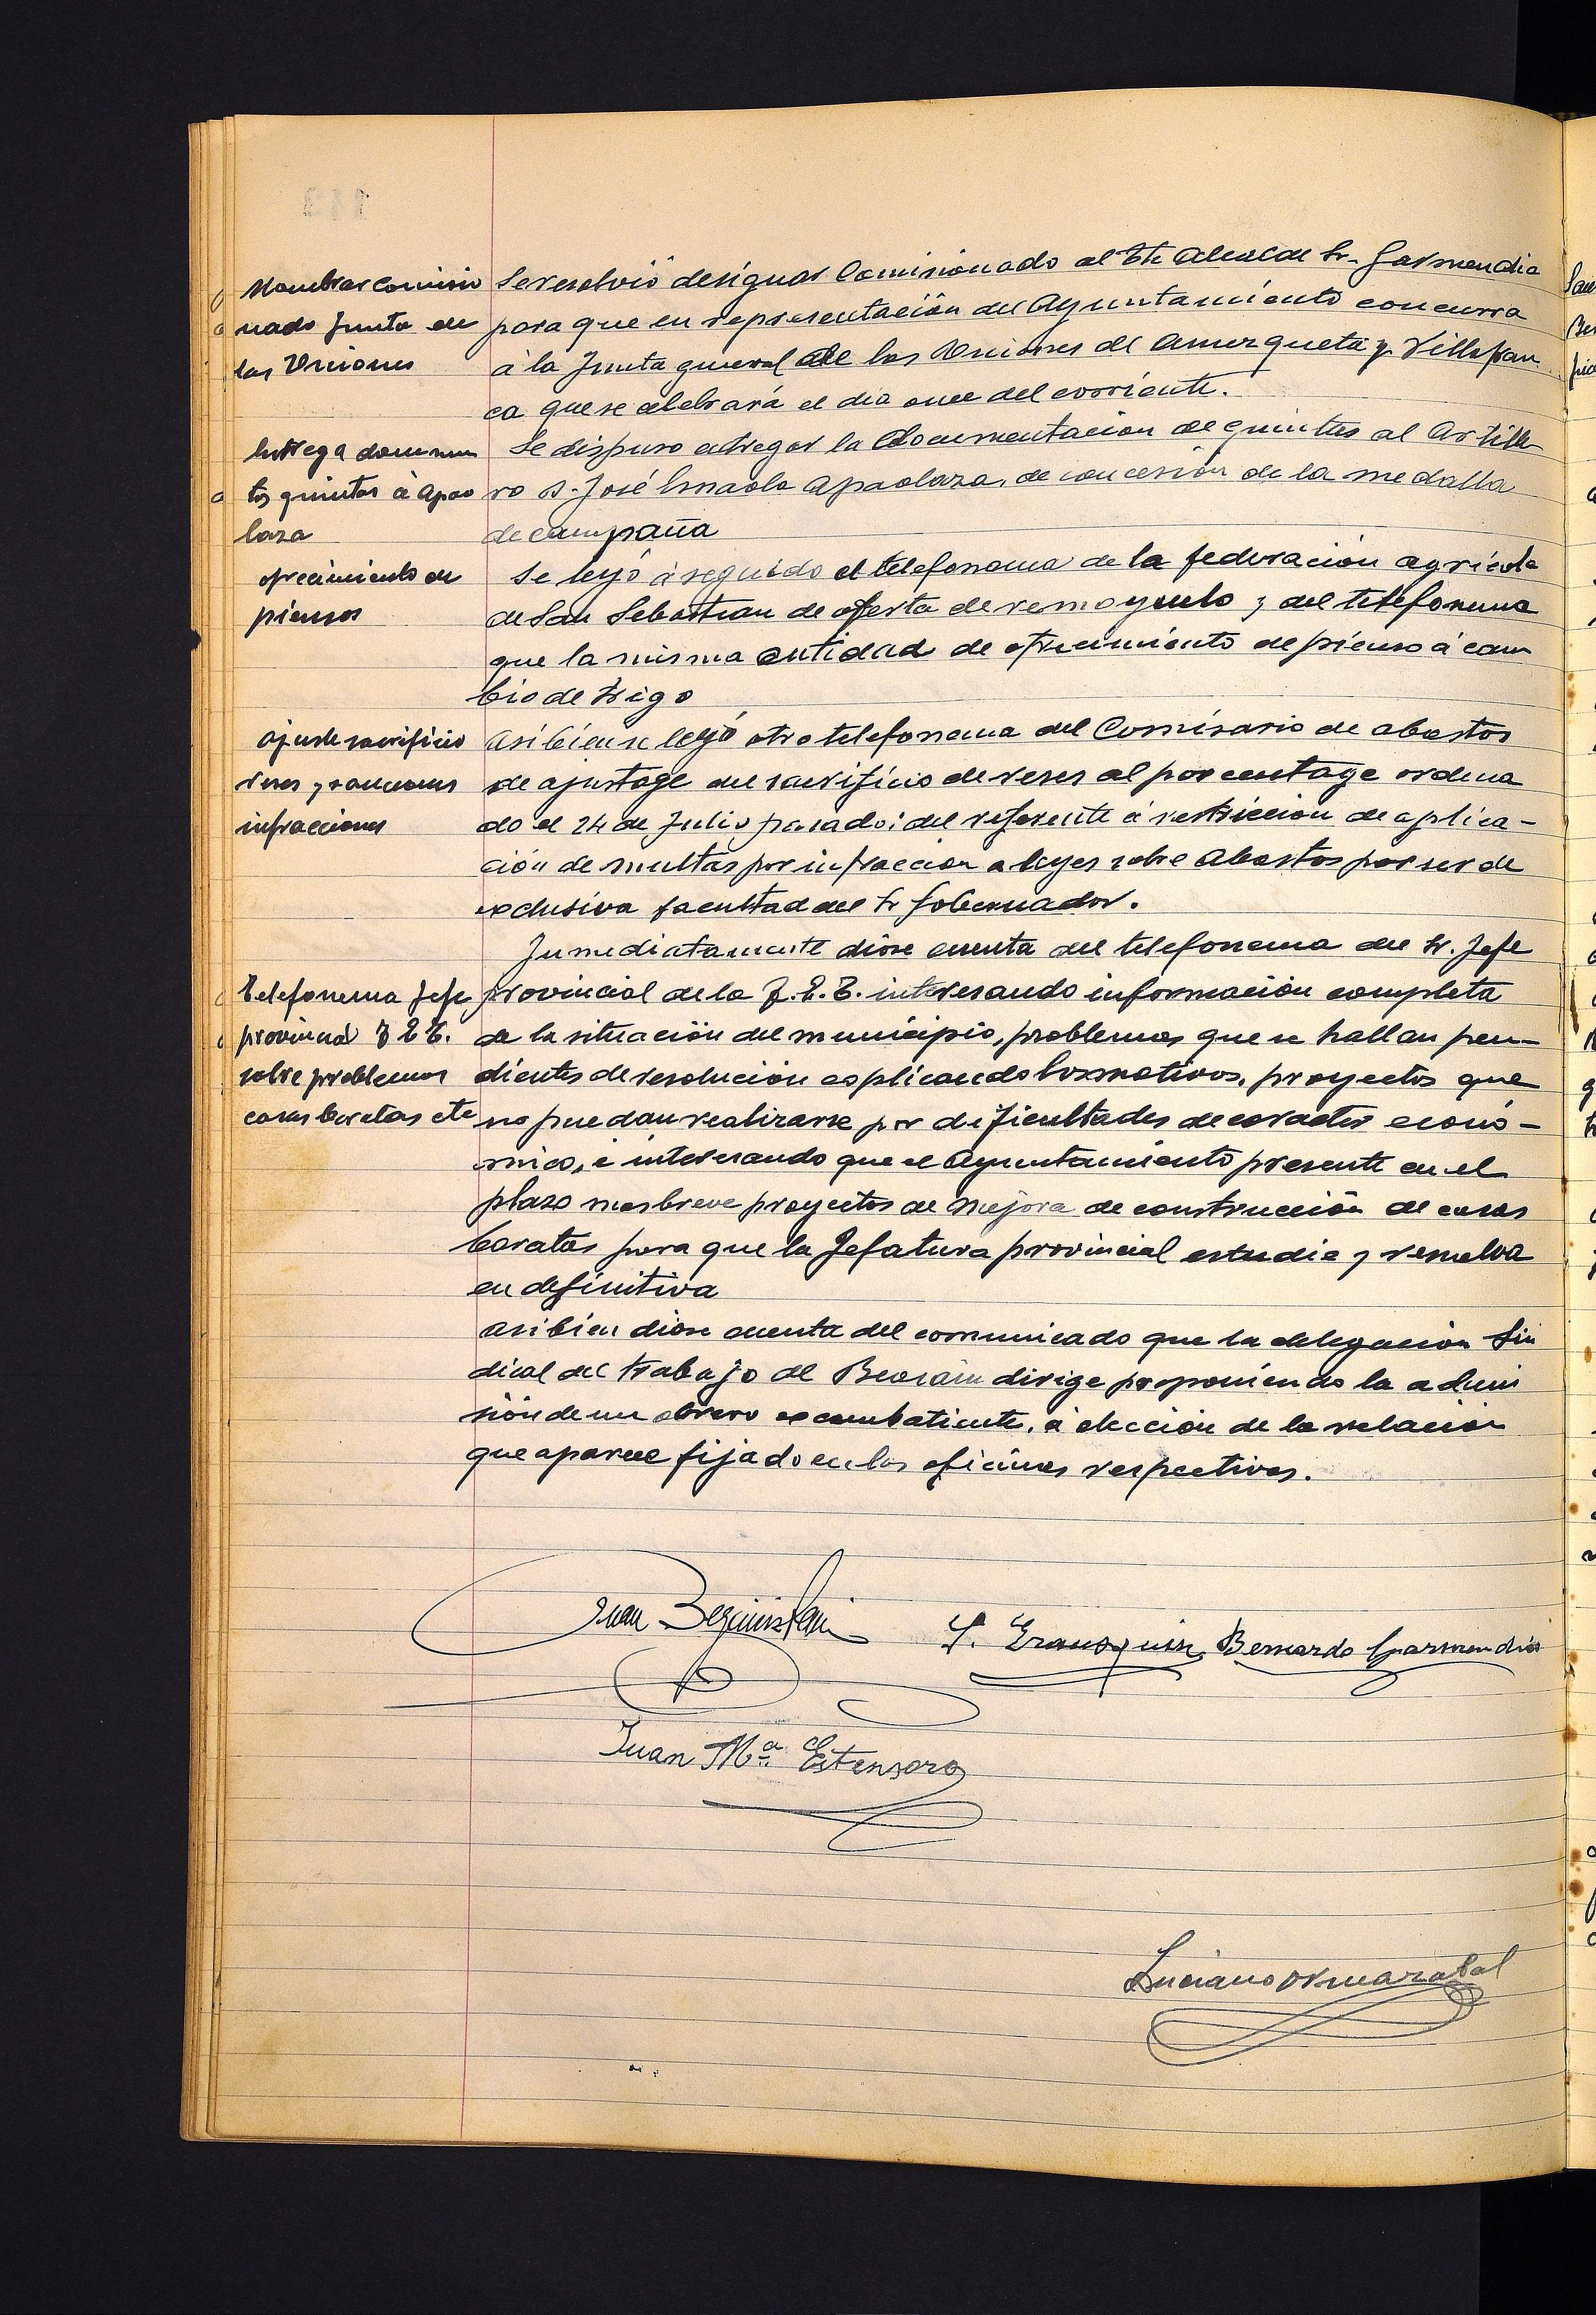 Nombrar comisio
nado Junta de
las Uniones
Se resolvió designar Comisionado al Tte Alcalde Sr. Garmendia
para que en representación del Ayuntamiento concurra
á la Junta general de las Uniones de Amezqueta y Villafran
ca que se celebrará el dia once del corriente.
Entrega documen
tos quintas á Apao
laza
Se dispuso entregar la documentacion de quintas al Artille
ro D. José Imaola Apaolaza, de concesión de la medalla
de campaña
ofrecimiento de
piensos
Se leyó á seguido el telefonema de la federacion agrícola
de San Sebastian de oferta de remoyuelo y del telefonema
que la misma entidad de ofrecimiento de pienso á cam
bio de trigo
ajuste sacrificio
reses y sanciones
infracciones
Asi bien se leyó otro telefonema del Comisario de abastos
de ajustage del sacrificio de reses al porcentage ordena
do el 24 de Julio pasado: del referente á restriccion de aplica-
ción de multas por infraccion a leyes sobre Abastos por ser de
exclusiva facultad del Sr Gobernador.
Inmediatamente diose cuenta del telefonema del Sr. Jefe
Telefonema Jefe
provincial F E T.
sobre problemas
casas baratas etc
provincial de la F. E. T. interesando información completa
de la situación del municipio, problemas que se hallan pen-
dientes de resolución esplicando los motivos, proyectos que
no puedan realizarse por dificultades de caracter econó-
mico, é interesando que el Ayuntamiento presente en el
plazo mas breve proyectos de mejora de construcción de casas
baratas para que la Jefatura provincial estudie y resuelva
en definitiva
Asi bien diose cuenta del comunicado que la delegacion Sin
dical del trabajo de Beasain dirige proponiendo la admi
sión de un obrero excombatiente, á elección de la relación
que aparece fijado en las oficinas respectivas.
Juan Beguiristain
S. Erausquin Bernardo Garmendia
Juan Mª Estensoro
Luciano Ormazabal